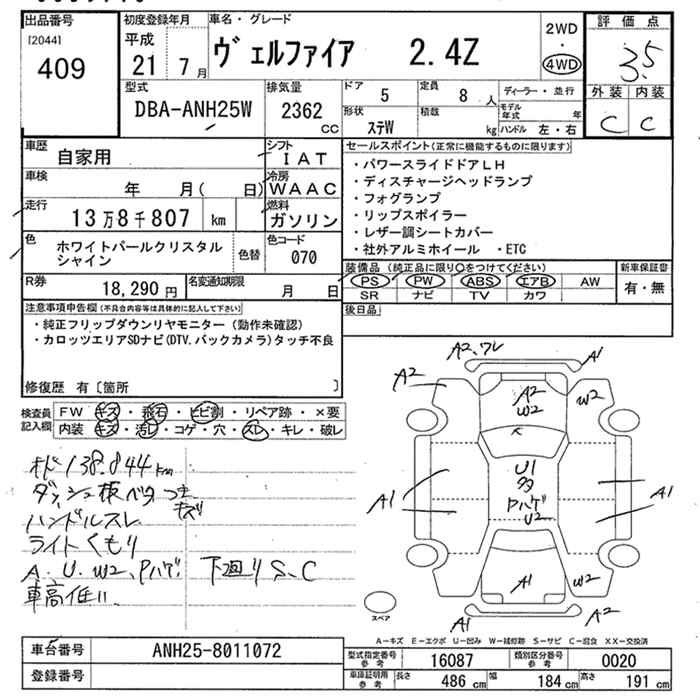 出品番号
[2044]
409
初度登録年月
平成
21 7 月
車名・グレード
ヴェルファイア 2.4Z
2WD
・
4WD
評価点
3.5
外装 内装
C C
型式
DBA-ANH25W
排気量
2362
cc
ドア 5
定員 8 人
形状 ステW
積載 kg
ディーラー・並行
モデル年式 年
ハンドル 左・右
車歴
自家用
シフト
IAT
車検
年 月( 日)
冷房
WAAC
走行
13万8千807 km
燃料
ガソリン
色
ホワイトパールクリスタル
シャイン
色替
色コード
070
R券
18,290 円
名変通知期限
月 日
セールスポイント(正常に機能するものに限ります)
・パワースライドドアLH
・ディスチャージヘッドランプ
・フォグランプ
・リップスポイラー
・レザー調シートカバー
・社外アルミホイール ・ETC
装備品(純正品に限り〇をつけてください)
PS PW ABS エアB AW
SR ナビ TV カワ
新車保証書
有・無
後日品
注意事項申告欄(不具合内容等は具体的に記入して下さい)
・純正フリップダウンリヤモニター(動作未確認)
・カロッツエリアSDナビ(DTV.バックカメラ)タッチ不良
修復歴 有〔箇所 〕
検査員
記入欄
FW キズ・飛石・ヒビ割・リペア跡・×要
内装 キズ・汚レ・コゲ・穴・スレ・キレ・破レ
138.844km
ダッシュ板ベタつき
キズ
ハンドルスレ
ライトくもり
A.U.W2.Pハゲ 下廻りS.C
車高低い
A2.ワレ
A1
A2
A2
W2
W2
A1
U1
多
Pハゲ
U2
A1
A1
W2
A1
A2
スペア
A−キズ E−エクボ U−凹み W−補修跡 S−サビ C−腐食 XX−交換済
車台番号
ANH25-8011072
登録番号
型式指定番号
参考
16087
類別区分番号
参考
0020
車庫証明用
参考
長さ 486 cm
幅 184 cm
高さ 191 cm